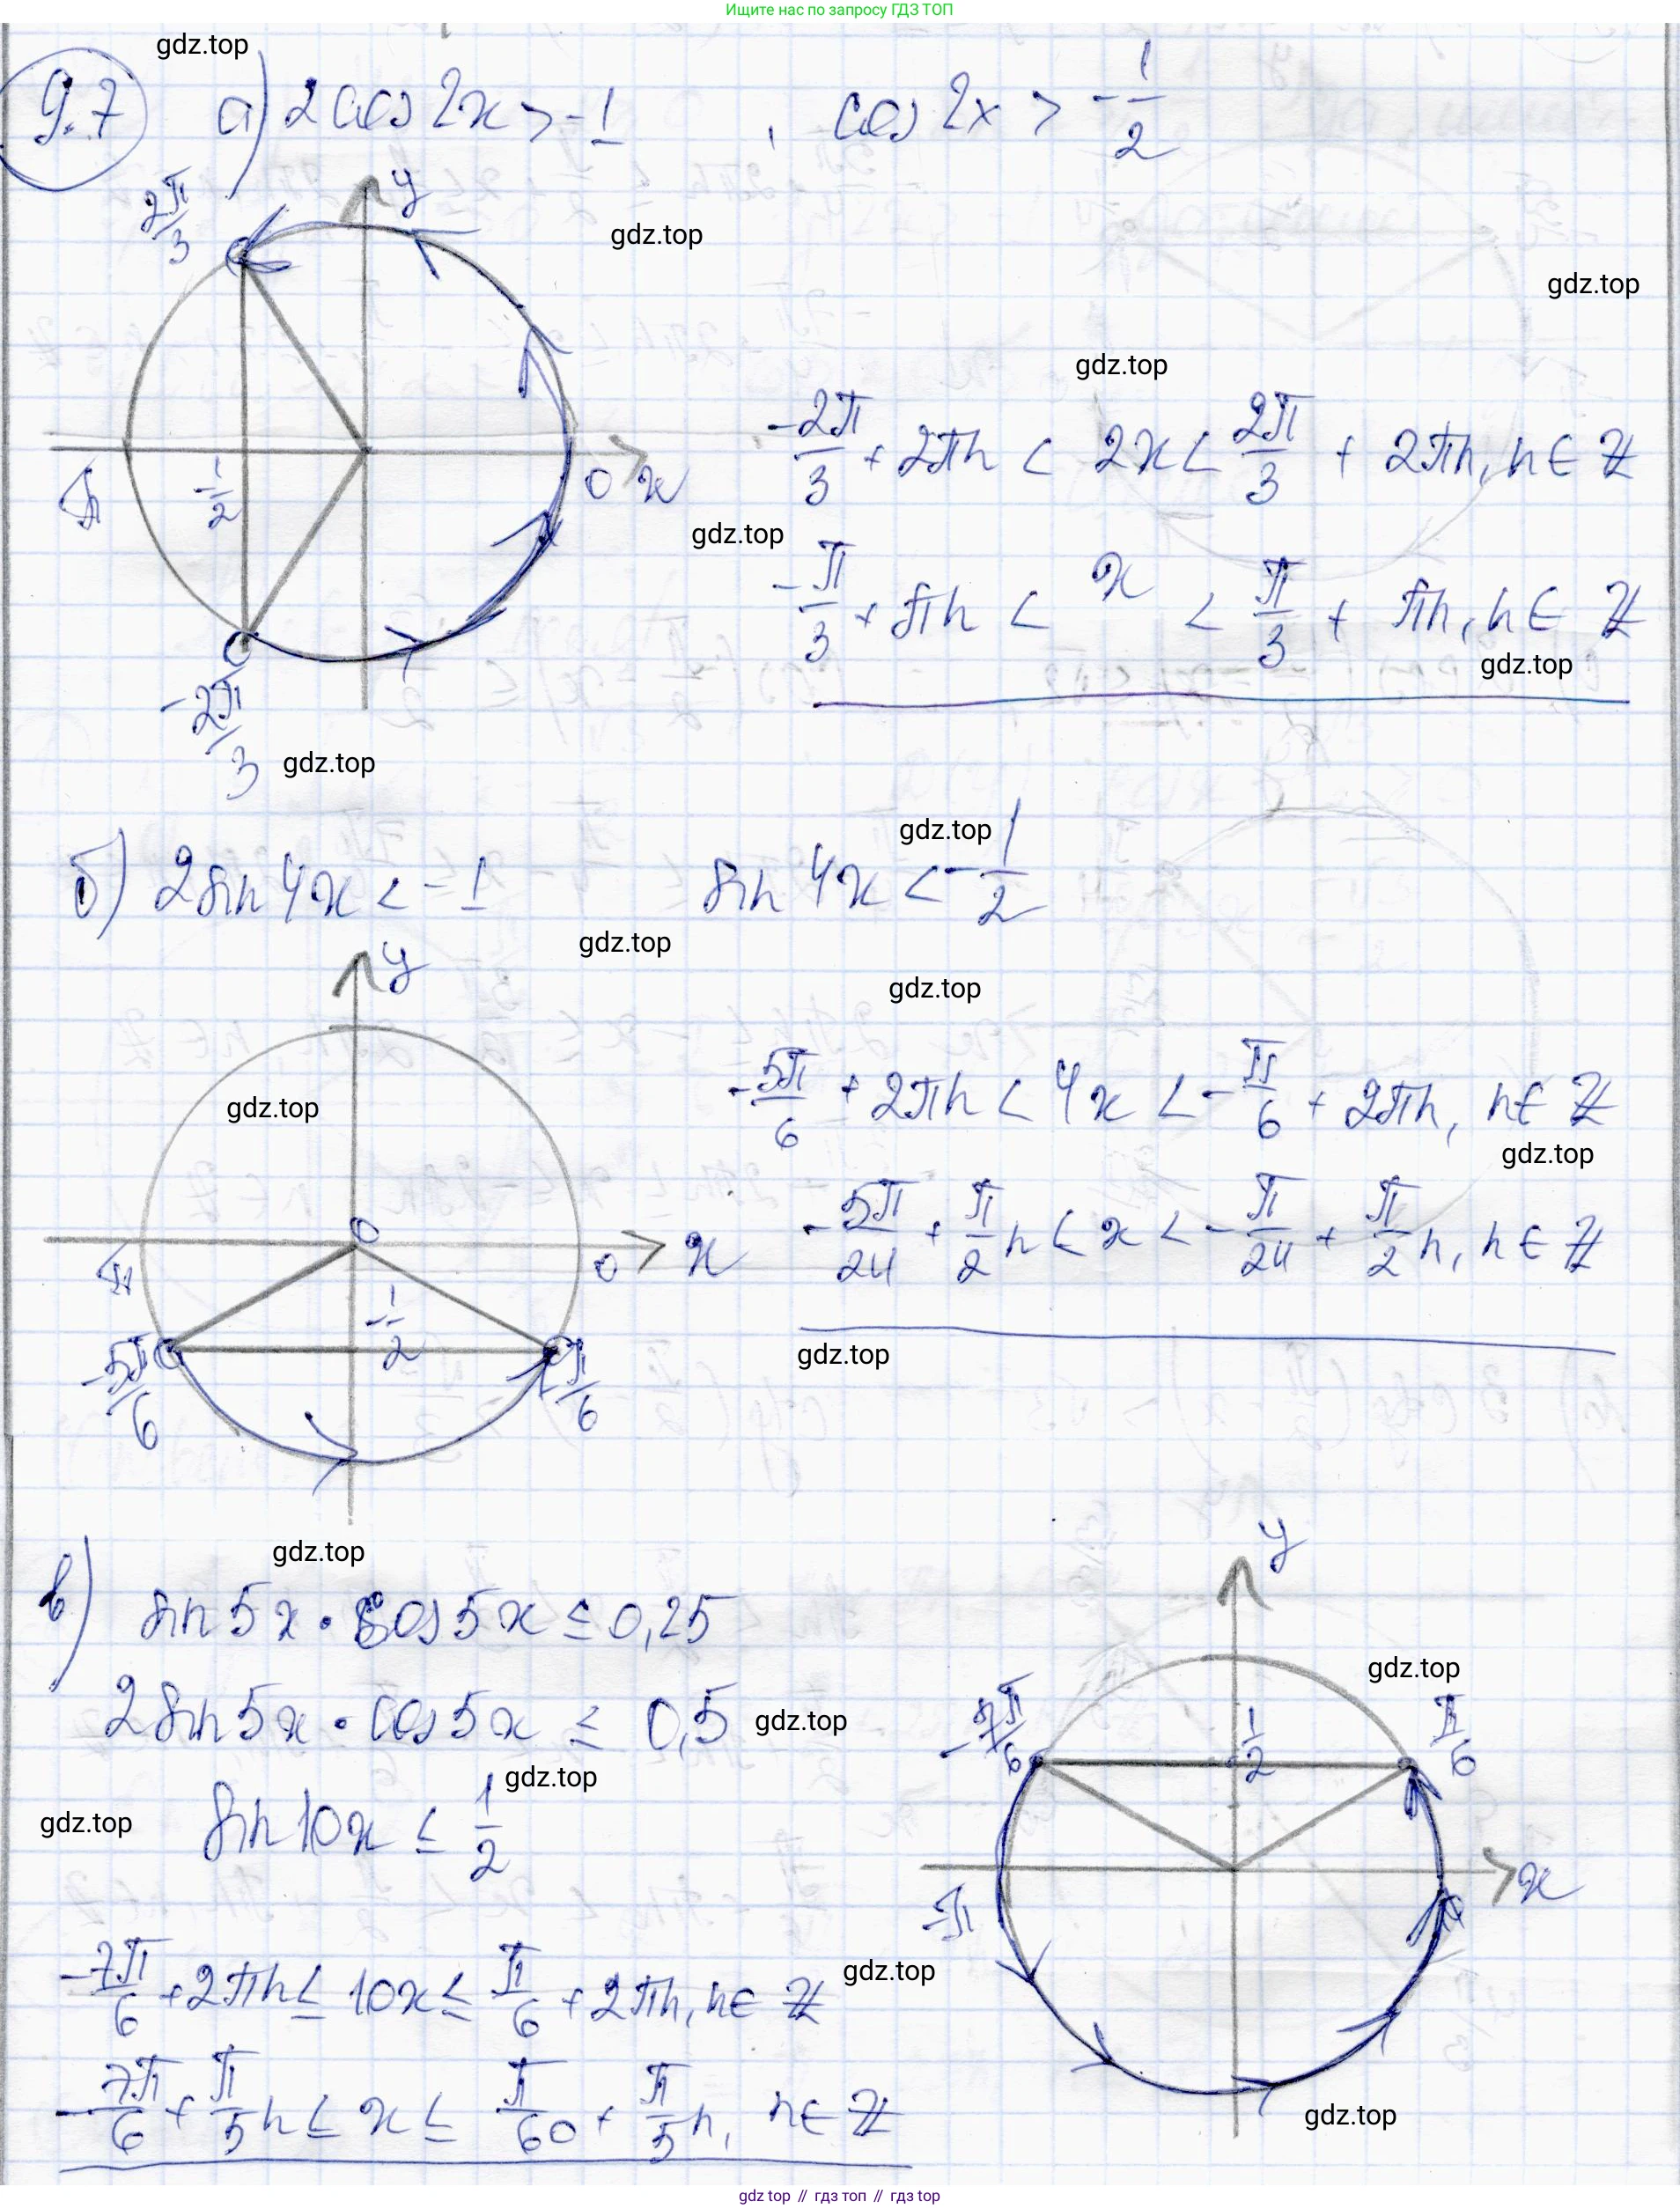 Ищите нас по запросу ГДЗ ТОП
gdz.top
9.7 а) 2cos2x > -1 , cos2x > -1/2
2π/3 y
gdz.top
gdz.top
gdz.top
-2π/3 + 2πn < 2x < 2π/3 + 2πn, n ∈ Z
π -1/2 0 x
gdz.top
-π/3 + πn < x < π/3 + πn, n ∈ Z
gdz.top
-2π/3
gdz.top
gdz.top
б) 2sin4x < -1 sin4x < -1/2
gdz.top
y
gdz.top
gdz.top
-5π/6 + 2πn < 4x < -π/6 + 2πn, n ∈ Z
gdz.top
-5π/24 + π/2 n < x < -π/24 + π/2 n, n ∈ Z
0
-π 0 x
-1/2
gdz.top
-5π/6 -π/6
gdz.top
y
в) sin5x · cos5x ≤ 0,25
gdz.top
2sin5x · cos5x ≤ 0,5
gdz.top
-7π/6 1/2 π/6
gdz.top
gdz.top
sin10x ≤ 1/2
-π x
gdz.top
-7π/6 + 2πn ≤ 10x ≤ π/6 + 2πn, n ∈ Z
gdz.top
-7π/6 + π/5 n ≤ x ≤ π/60 + π/5 n, n ∈ Z
gdz.top // гдз топ // гдз top